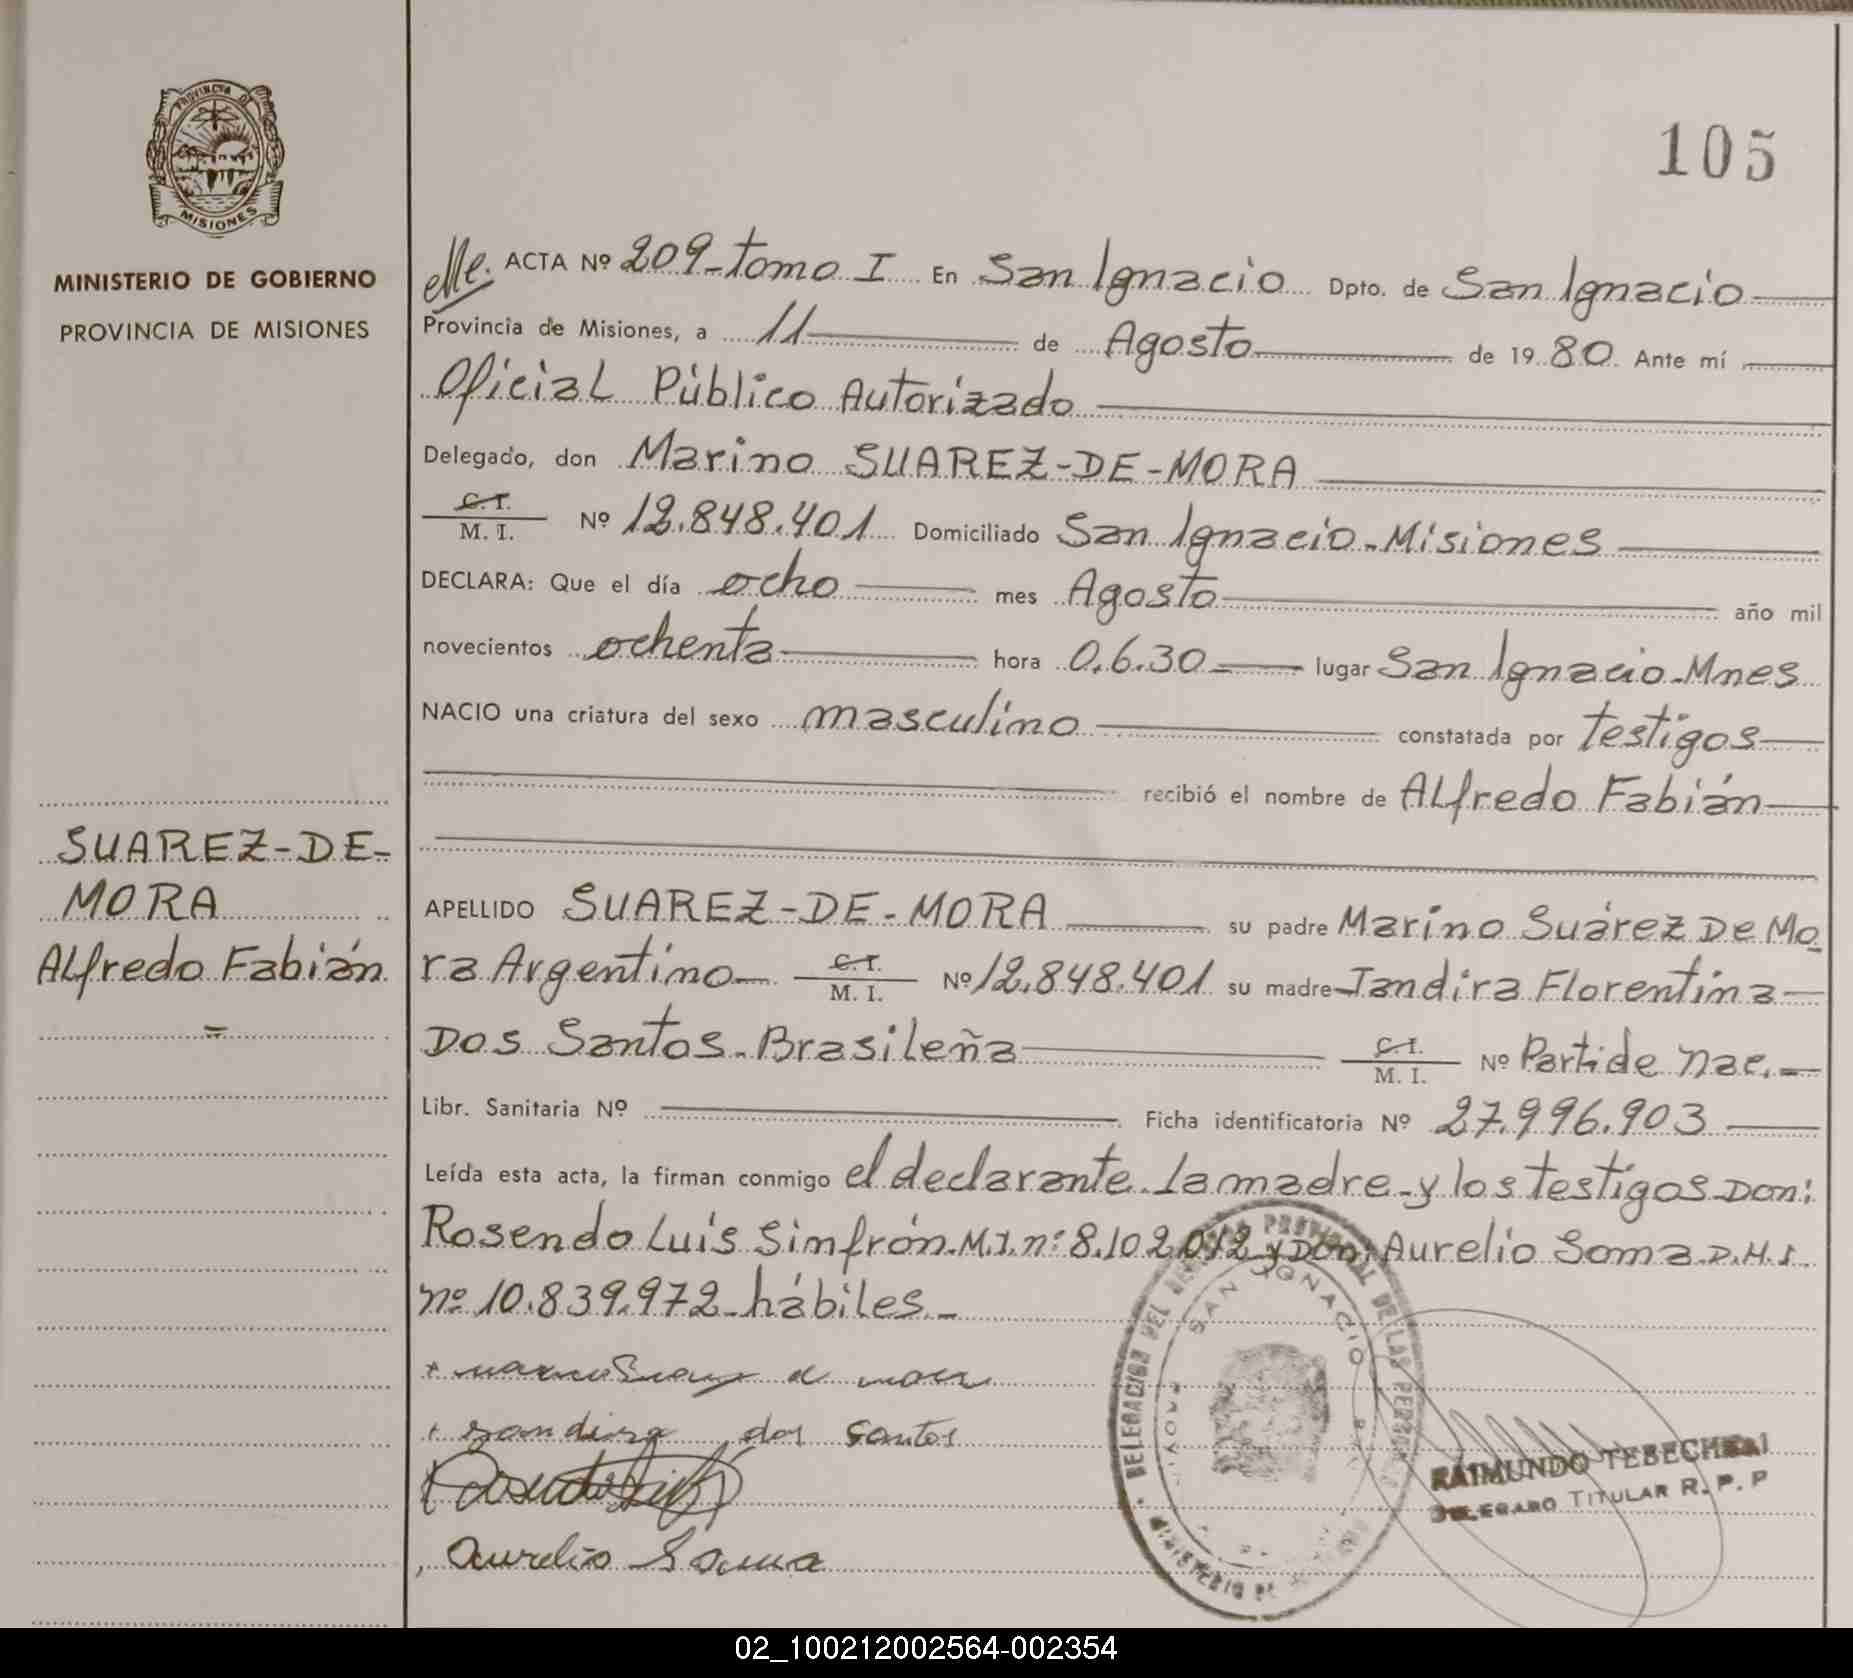 105
PROVINCIA DE
MISIONES
MINISTERIO DE GOBIERNO
PROVINCIA DE MISIONES
SUAREZ-DE-
MORA
ALfredo Fabián
=
ACTA Nº 209-tomo I En San Ignacio Dpto. de San Ignacio
Provincia de Misiones, a 11 de Agosto de 1980 Ante mí
Oficial Público Autorizado
Delegado, don Marino SUAREZ-DE-MORA
C.I.
M. I. Nº 12.848.401 Domiciliado San Ignacio-Misiones
DECLARA: Que el día ocho mes Agosto año mil
novecientos ochenta hora 0.6.30 lugar San Ignacio-Mnes
NACIO una criatura del sexo masculino constatada por testigos
recibió el nombre de ALfredo Fabián
APELLIDO SUAREZ-DE-MORA su padre Marino Suárez De Mo
ra Argentino C.I. M. I. Nº 12.848.401 su madre Jandira Florentina
Dos Santos-Brasileña C.I. M. I. Nº Part.de nac.-
Libr. Sanitaria Nº Ficha identificatoria Nº 27.996.903
Leída esta acta, la firman conmigo el declarante la madre-y los testigos Don:
Rosendo Luis Simfrón-M.I.nº:8.102.012 y Don: Aurelio Soma D.M.I.
nº 10.839.972-hábiles.-
Jandira dos Santos
Aurelio Soma
DELEGACION DEL REGISTRO PROVINCIAL DE LAS PERSONAS
SAN IGNACIO
MINISTERIO DE
RAIMUNDO TEBECHERAI
DELEGADO TITULAR R. P. P
02_100212002564-002354